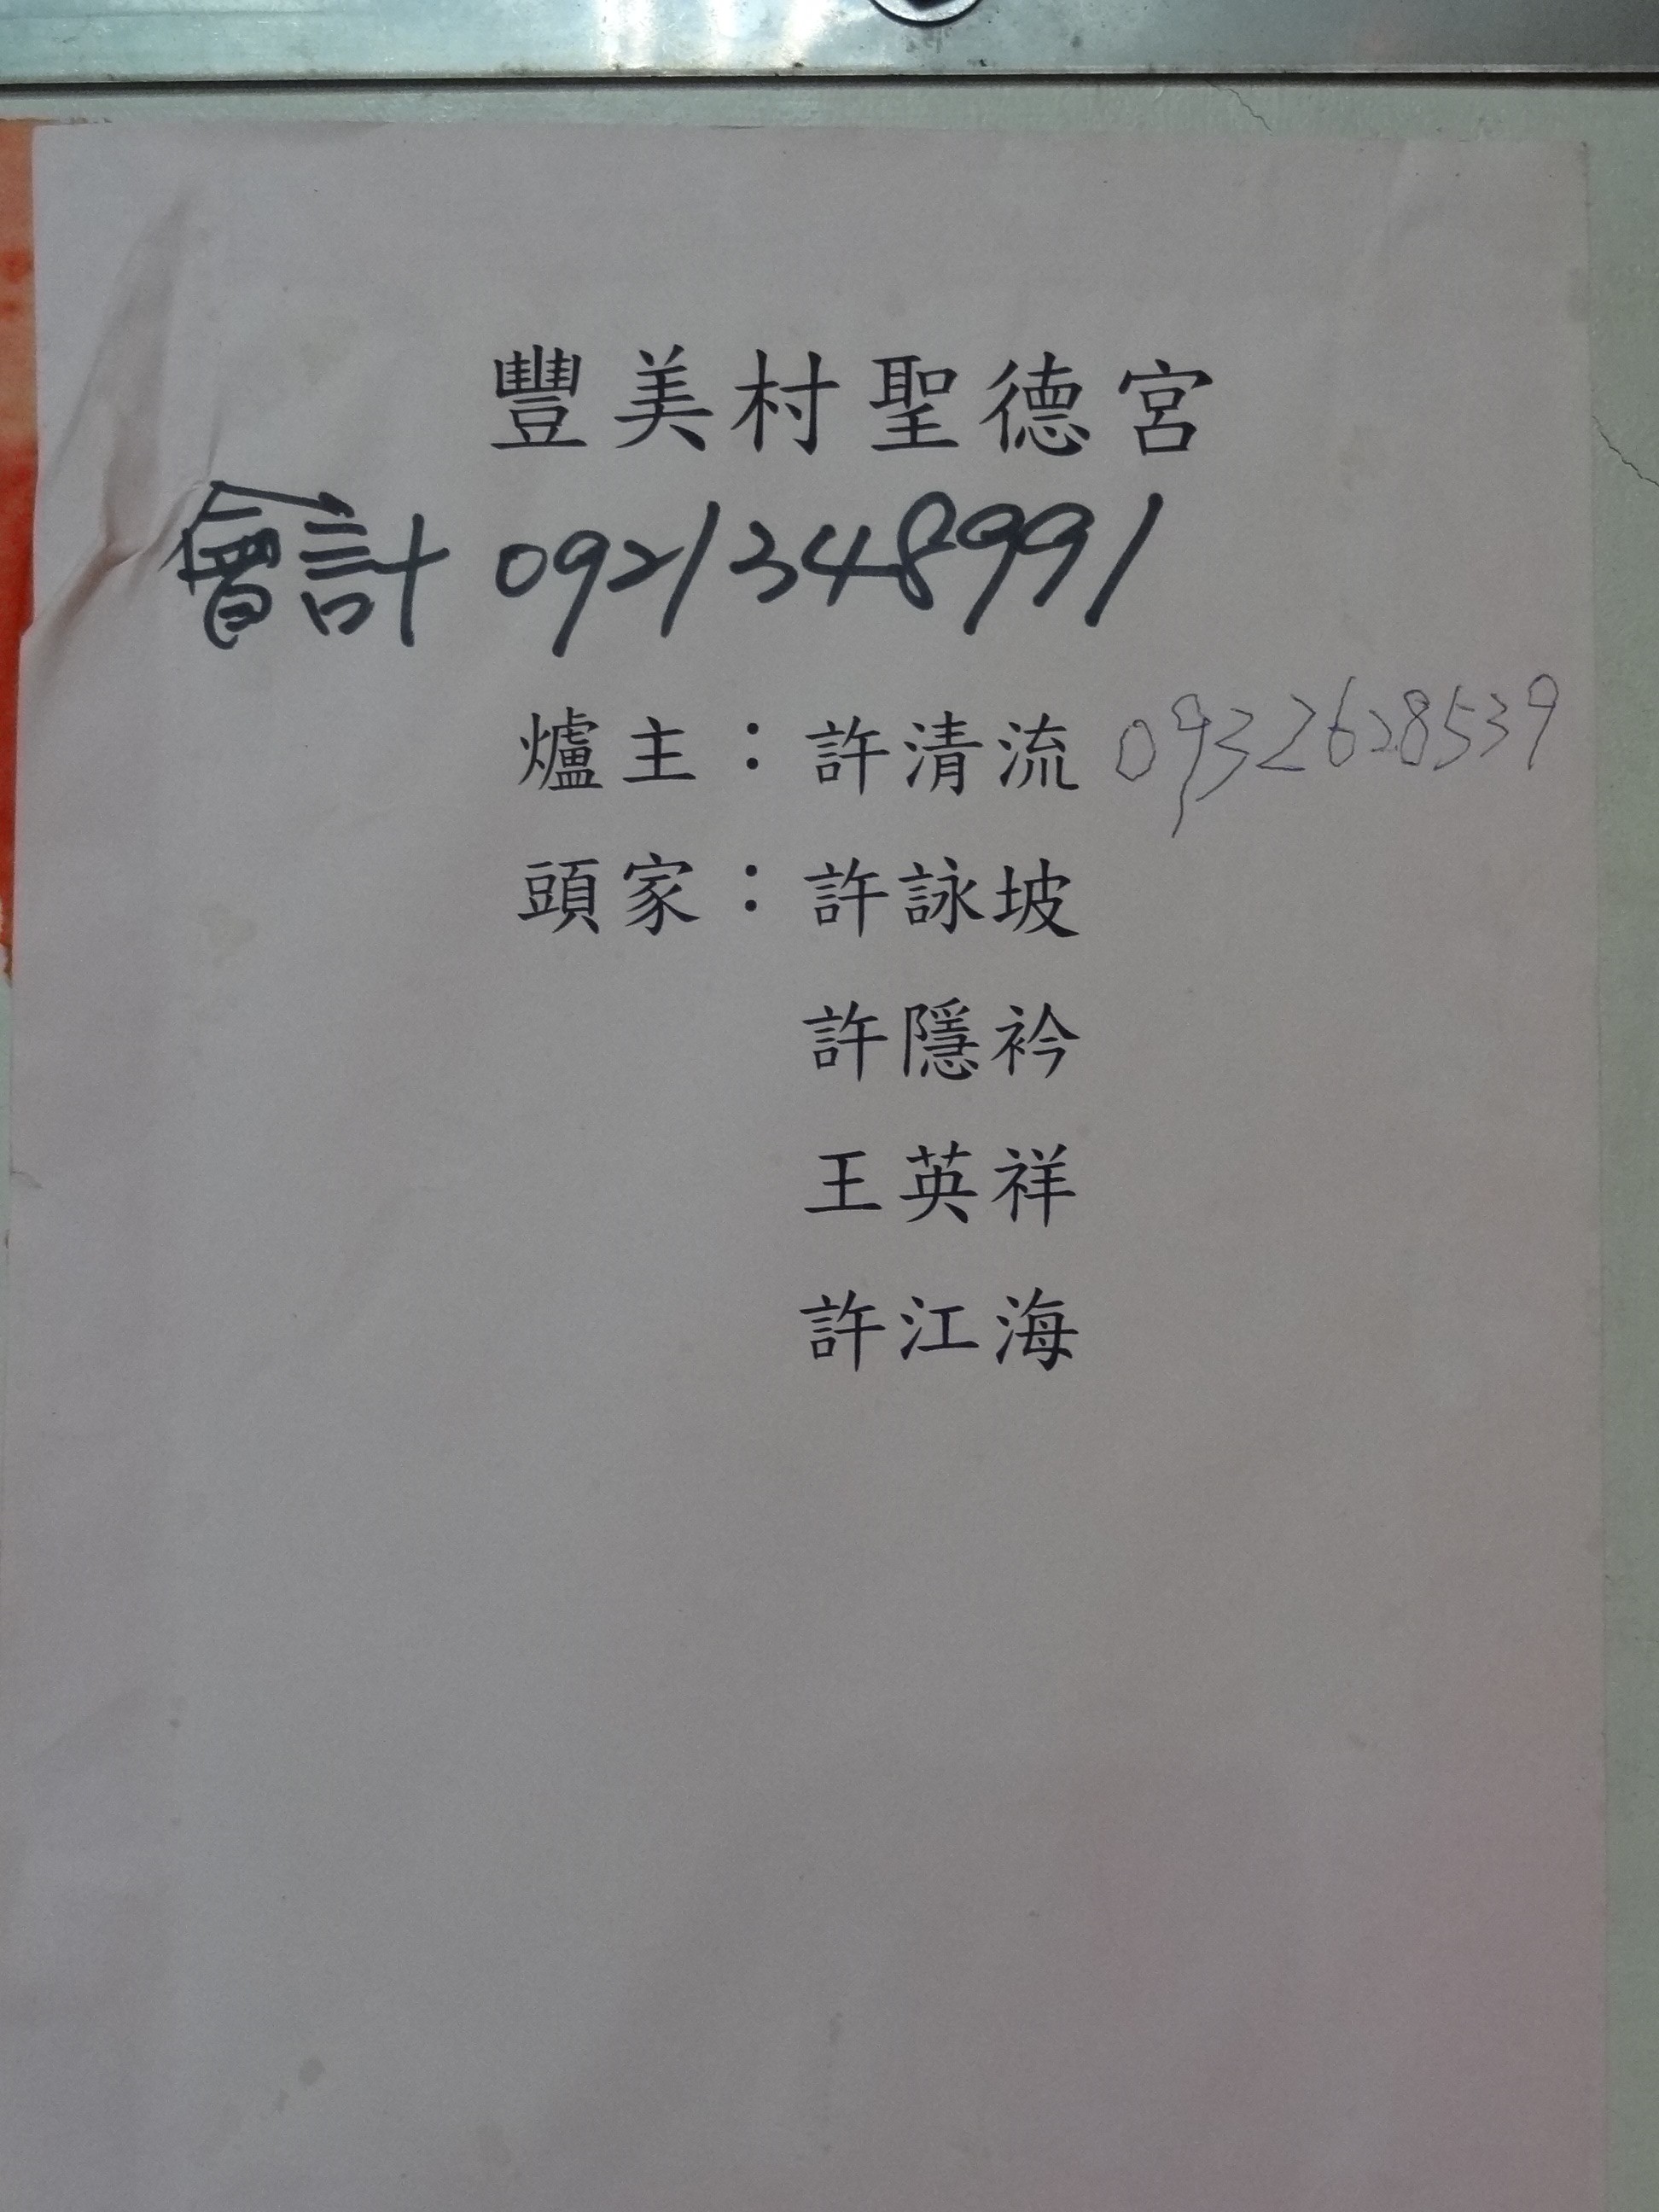 豐美村聖德宮
會計 0921348991
爐主：許清流 0932628539
頭家：許詠坡
許隱衿
王英祥
許江海